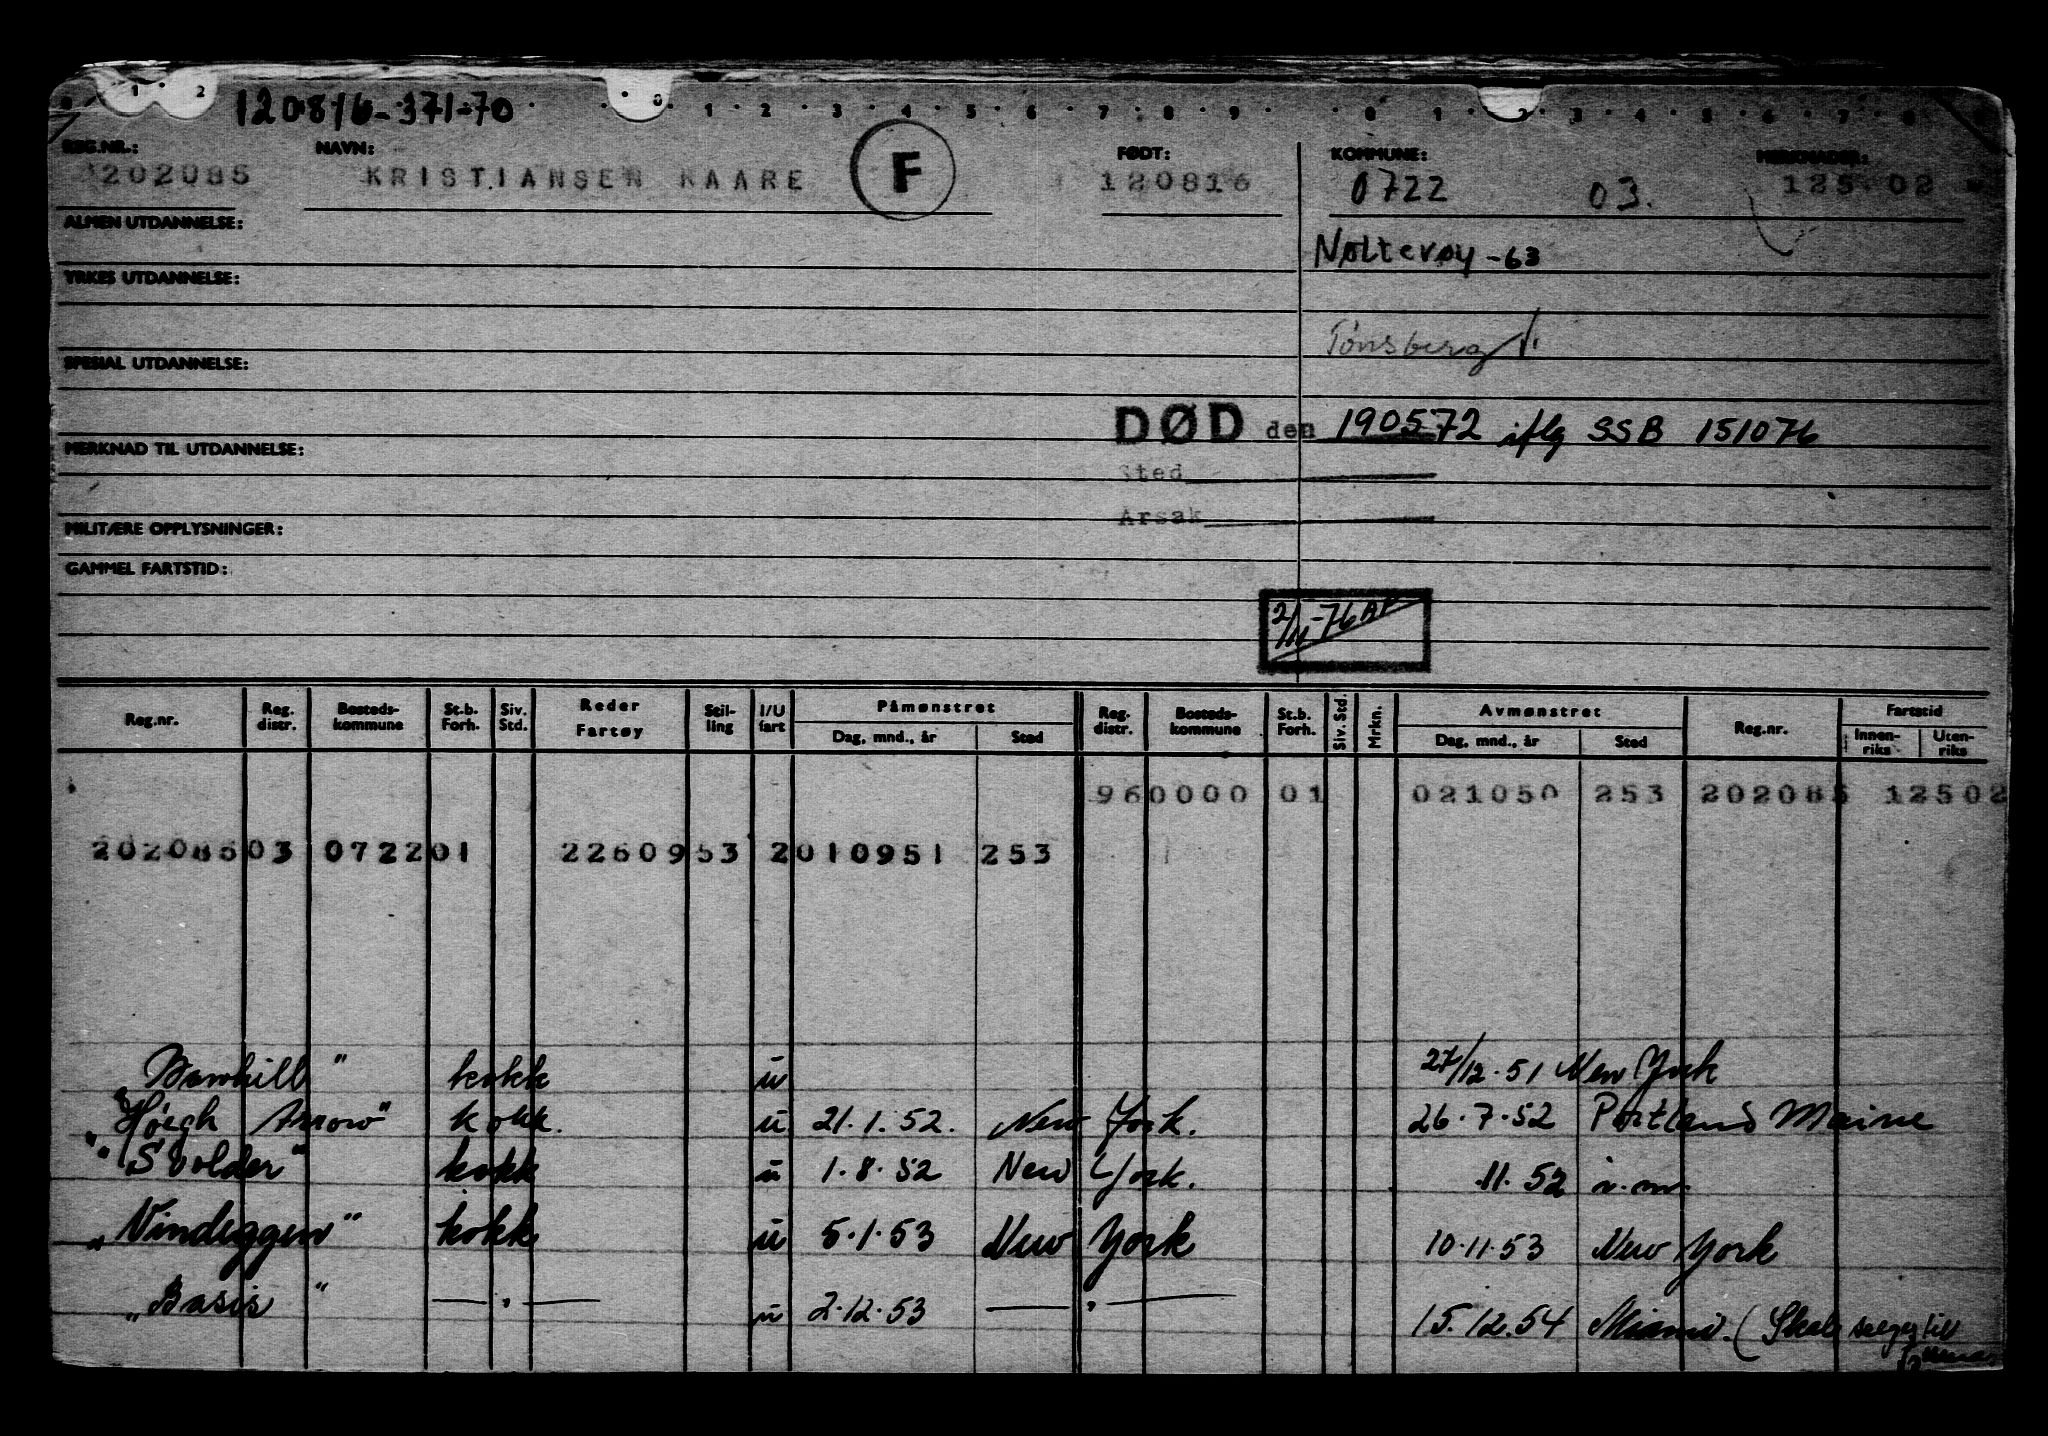 120816-371-70
REG.NR.: NAVN: FØDT: KOMMUNE: MERKNADER:
202085 KRISTIANSEN KAARE F 120816 0722 03. 125 02
ALMEN UTDANNELSE:
Nøtterøy -63
YRKES UTDANNELSE:
Tønsberg
SPESIAL UTDANNELSE:
DØD den 190572 iflg SSB 151076
MERKNAD TIL UTDANNELSE:
Sted
Årsak
MILITÆRE OPPLYSNINGER:
GAMMEL FARTSTID:
2/11-76 AP
Reg.nr. Reg. distr. Bosteds-kommune St.b. Forh. Siv. Std. Reder Fartøy Stil-ling I/U fart Påmønstret Dag, mnd., år Sted Reg. distr. Bosteds-kommune St.b. Forh. Siv. Std. Mrkn. Avmønstret Dag, mnd., år Sted Reg.nr. Fartstid Innen-riks Uten-riks
960000 01 021050 253 202085 12502
20208503 072201 2260953 2010951 253
kokk u 27/12.51 New York
"Høegh Arrow" kokk. u 21.1.52. New York. 26.7.52 Portland Maine
"Svolder" kokk u 1.8.52 New York. 11.52 u.m.
"Vindeggen" kokk u 5.1.53 New York 10.11.53 New York
"Basis" — " — u 2.12.53 — " — 15.12.54 Miami. (Skal